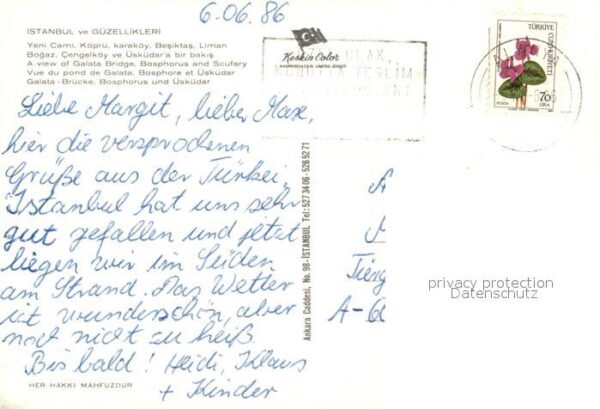 6.06.86
İSTANBUL ve GÜZELLİKLERİ
Yeni Cami, Köprü, karaköy, Beşiktaş, Liman
Boğaz, Çengelköy ve Üsküdar'a bir bakış
A view of Galata Bridge, Bosphorus and Scufary
Vue du pond de Galata, Bosphore et Üsküdar
Galata-Brücke, Bosphorus und Üsküdar
Liebe Margit, lieber Max,
hier die versprodenen
Grüße aus der Türkei,
Istanbul hat uns sehr
gut gefallen und jetzt
liegen wir im Seiden
am Strand. Das Wetter
ist wunderschön, aber
noch nicht zu heiß.
Bis bald! Heidi, Klaus
+ Kinder
HER HAKKI MAHFUZDUR
Keskin Color
ULAK,
TESLİM
Ankara Caddesi, No. 98-İSTANBUL Tel: 527 34 06-526 52 71
TÜRKİYE
CUMHURİYETİ
70
LİRA
POSTA
A
Tiëng
A-6
privacy protection
Datenschutz